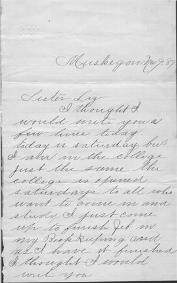 Muskegon 7 89
Sister Liz
I thought I
would write you a
few lines today
today is saturday but
I am in the college
just the same the
college is opened
saturdays to all who
want to come in and
study I just come
up to finish
my Book Keeping and
as I have it finished
I thought I would
writ you